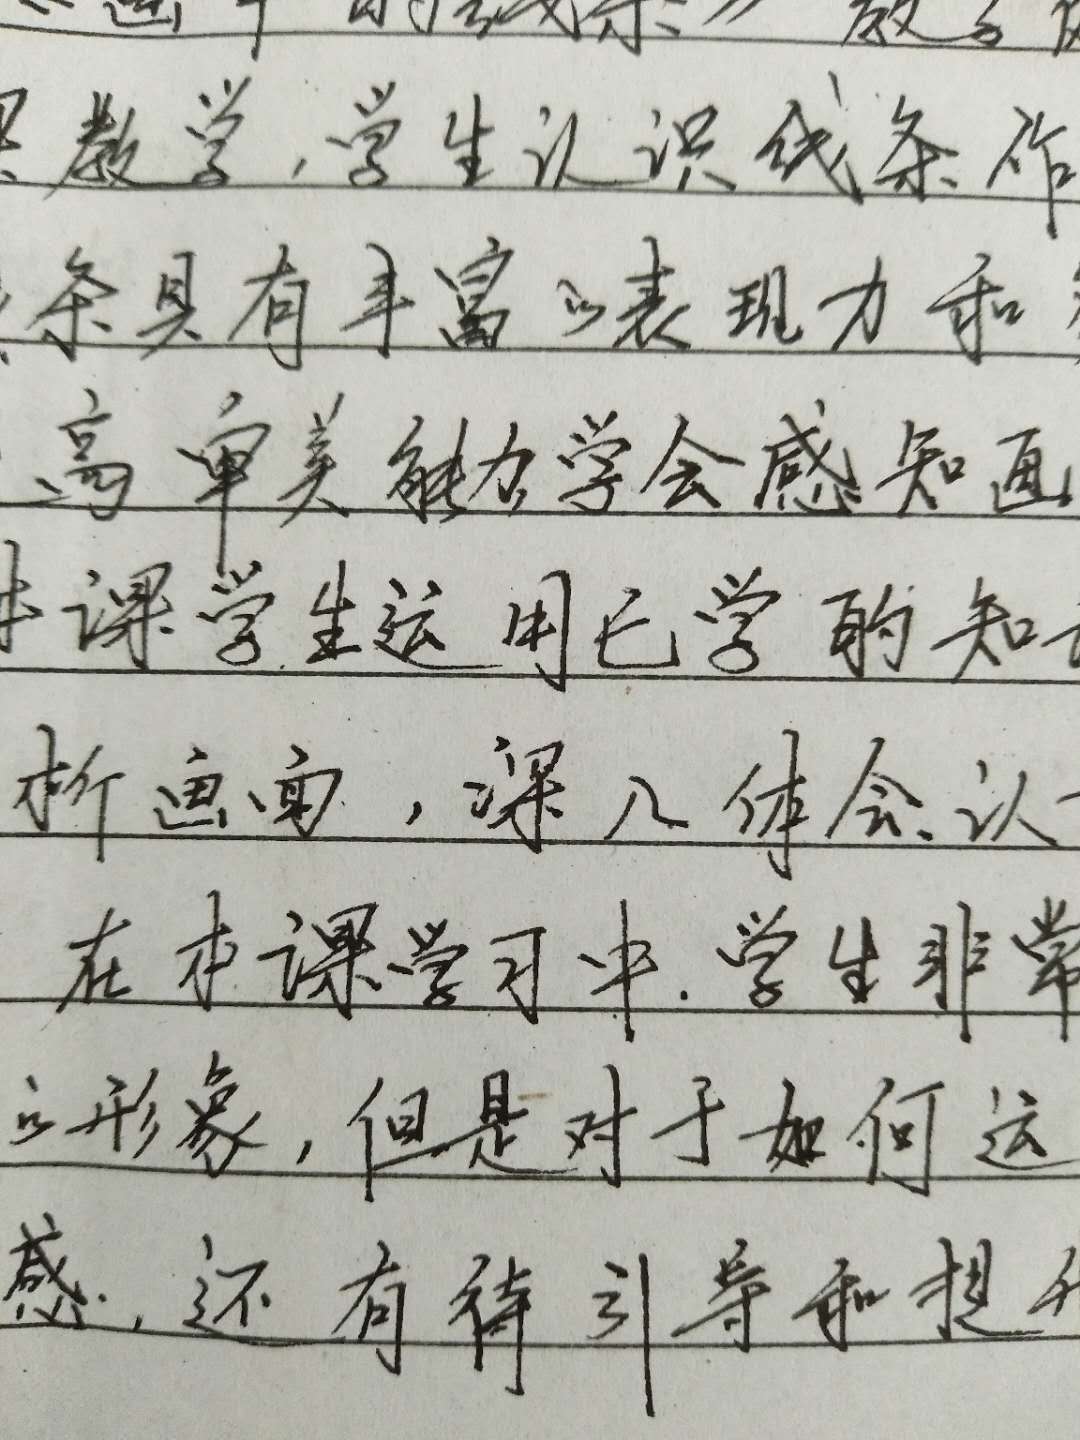 画中的线条》教
教学,学生认识线条作
条具有丰富的表现力和
高审美能力学会感知画
本课学生运用已学的知
析画面,深入体会认
在本课学习中.学生非常
的形象,但是对于如何运
感,还有待引导和提升